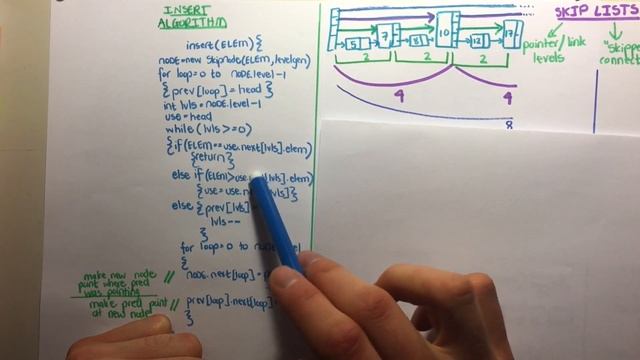 INSERT
ALGORITHM
insert(ELEM){
NODE=new SkipNode(ELEM, levelgen)
for loop=0 to NODE.level-1
{prev[loop]=head}
int lvls=NODE.level-1
use=head
while(lvls>=0)
{if(ELEM==use.next[lvls].elem)
{return}
else if(ELEM>use. lvls].elem)
{use=use. lvls]}
else {prev[lvls]
lvls--
}
for loop=0 to NODE.
{
make new node
point where pred
was pointing
// NODE.next[loop]=
make pred point
at new node
// prev[loop].next[loop]
}
5 7 8 10 12 17
2 2 2
4 4
8
SKIP LISTS
pointer/link
levels
"Skippe
connect